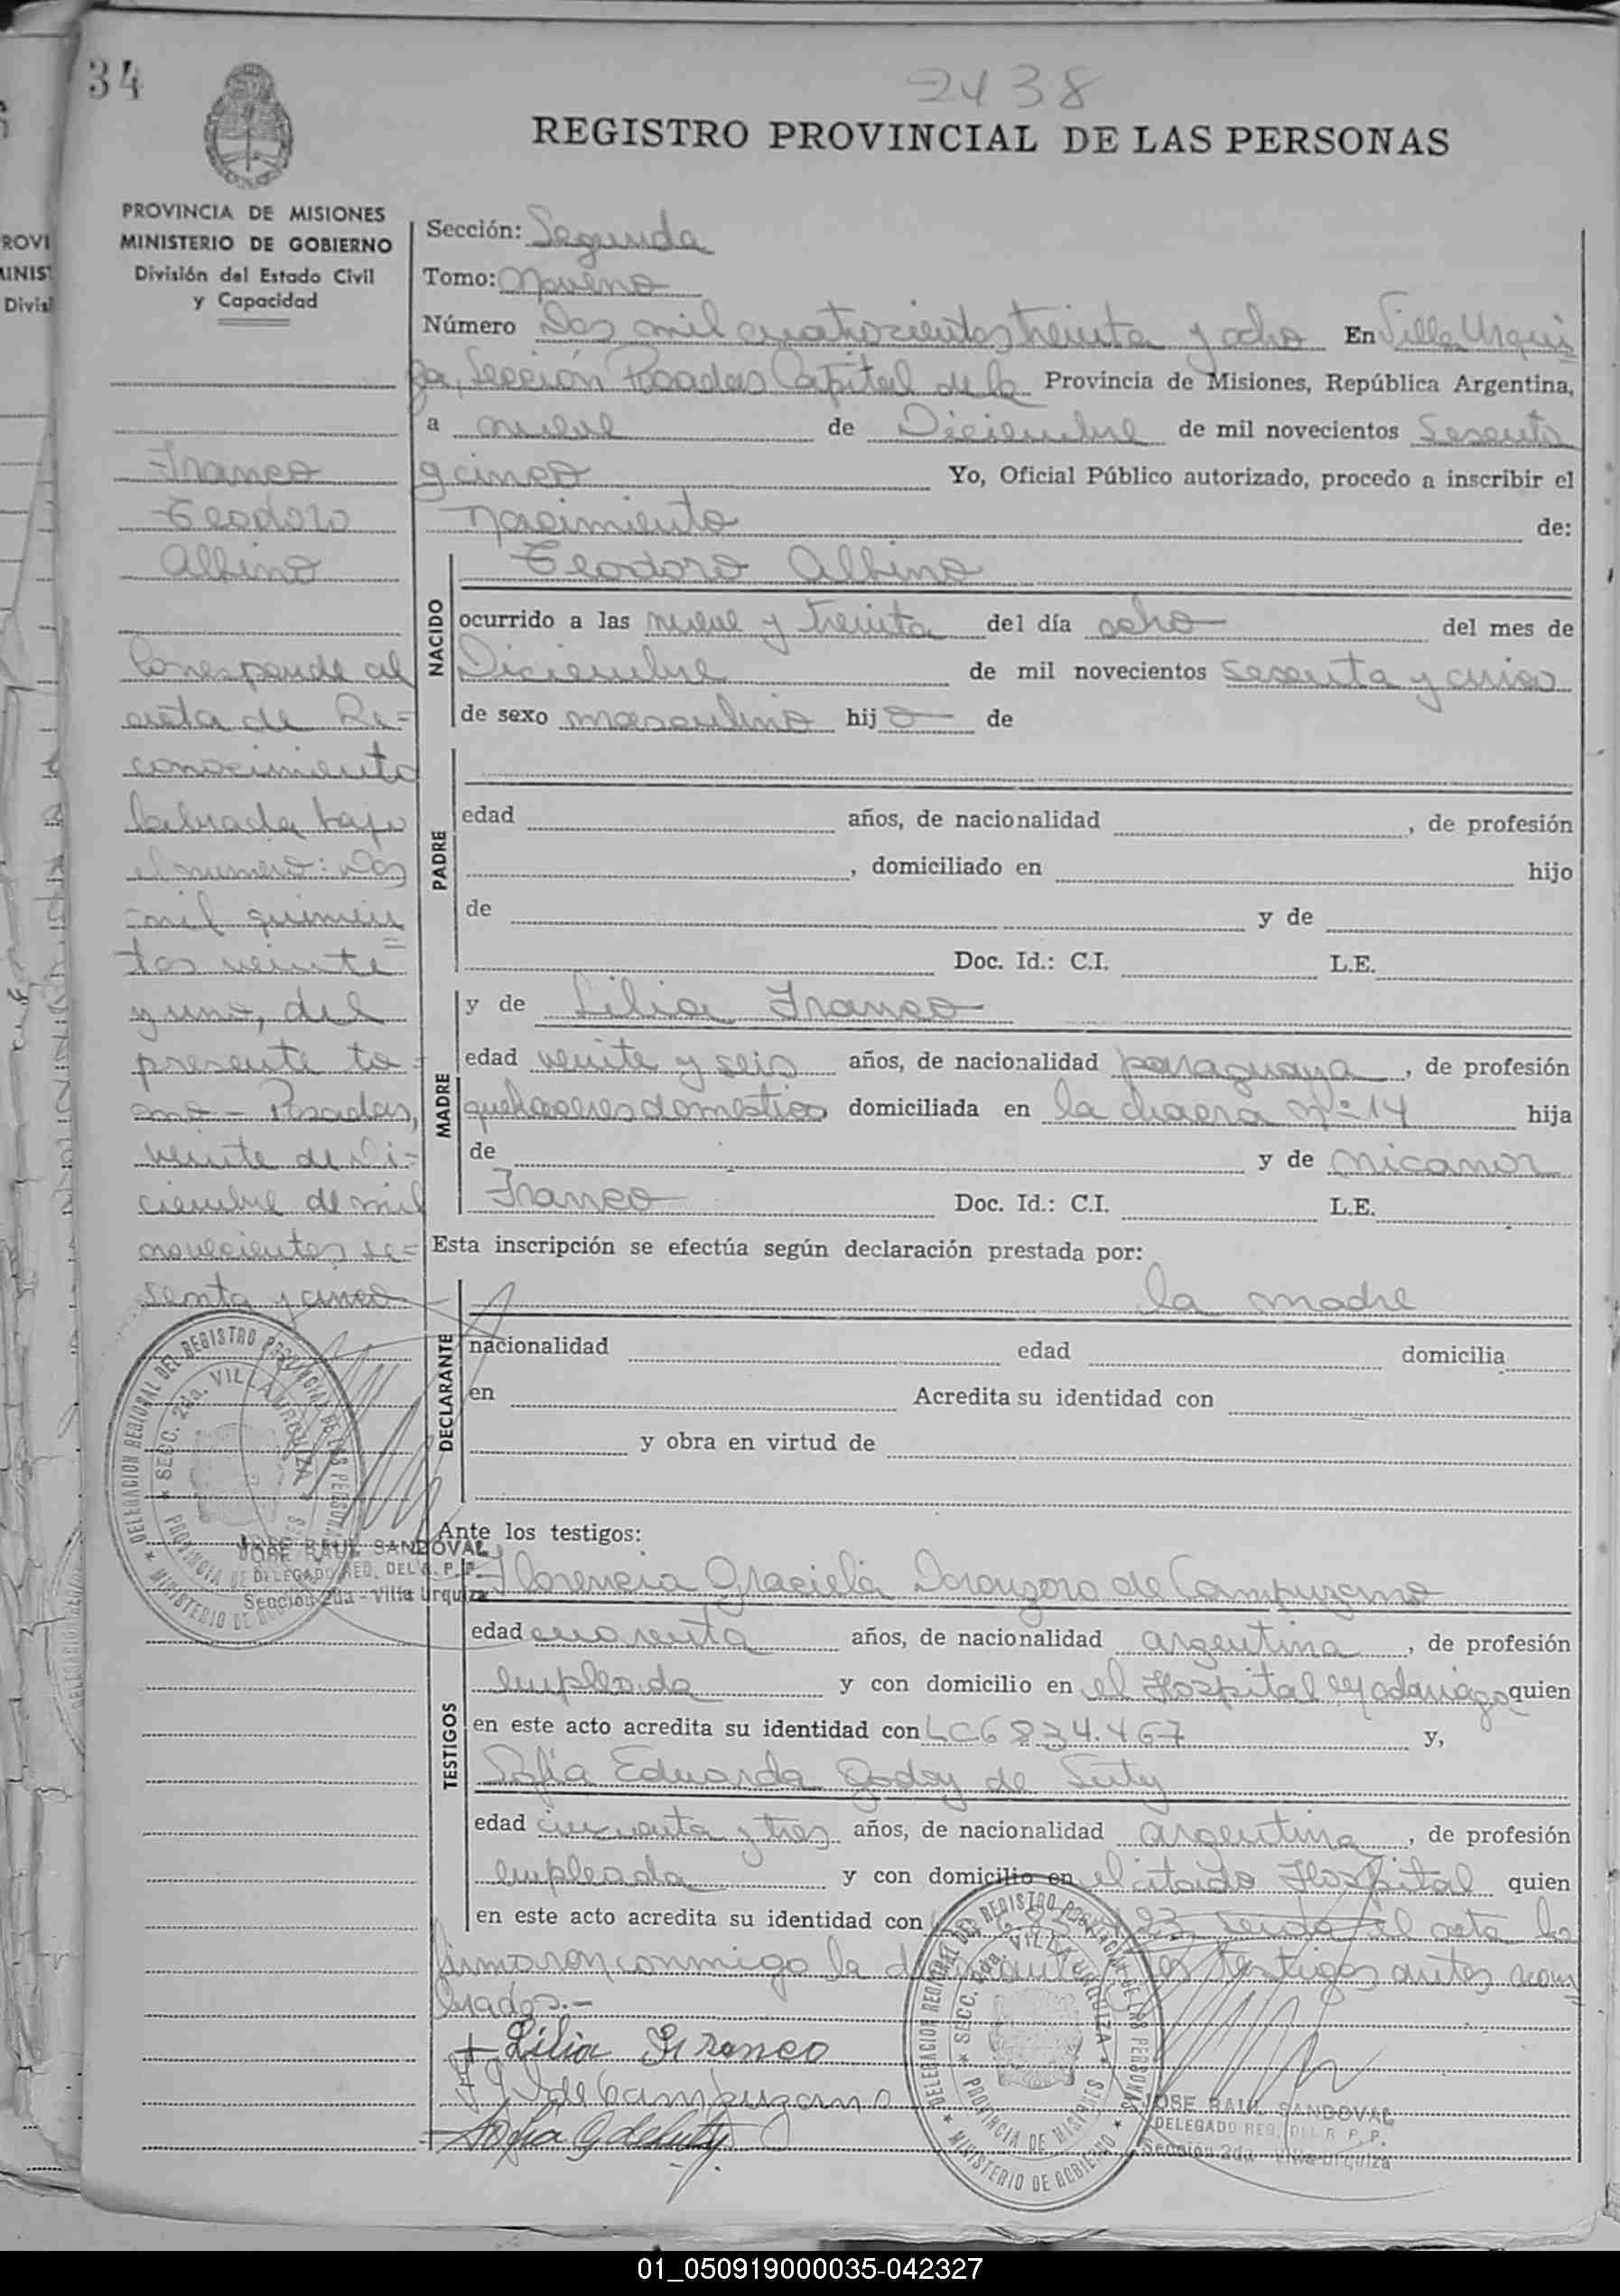 34
2438
REGISTRO PROVINCIAL DE LAS PERSONAS
PROVINCIA DE MISIONES
MINISTERIO DE GOBIERNO
División del Estado Civil
y Capacidad
Franco
Teodoro
Albino
Corresponde al
acta de Re=
conocimiento
labrada bajo
el numero: Dos
mil quinien
tos veinte
y uno, del
presente to=
mo - Posadas,
veinte de Di-
ciembre de mil
novecientos se=
senta y cinco
DELEGACION REGIONAL DEL REGISTRO PROVINCIAL DE LAS PERSONAS
SECC. 2da. VILLA URQUIZA
PROVINCIA DE MISIONES
MINISTERIO DE GOBIERNO
JOSE RAUL SANDOVAL
DELEGADO REG. DEL R. P. P.
Sección 2da - Villa Urquiza
Sección: Segunda
Tomo: Noveno
Número Dos mil cuatrocientos treinta y ocho En Villa Urqui=
za, Sección Posadas Capital de la Provincia de Misiones, República Argentina,
a nueve de Diciembre de mil novecientos sesenta
y cinco Yo, Oficial Público autorizado, procedo a inscribir el
nacimiento de:
NACIDO
Teodoro Albino
ocurrido a las nueve y treinta del día ocho del mes de
Diciembre de mil novecientos sesenta y cinco
de sexo masculino hijo de
PADRE
edad años, de nacionalidad , de profesión
, domiciliado en hijo
de y de
Doc. Id.: C.I. L.E.
MADRE
y de Lilia Franco
edad veinte y seis años, de nacionalidad paraguaya, de profesión
quehaceres domestico domiciliada en la chacra nº 14 hija
de y de Nicanor
Franco Doc. Id.: C.I. L.E.
Esta inscripción se efectúa según declaración prestada por:
DECLARANTE
la madre
nacionalidad edad domicilia
en Acredita su identidad con
y obra en virtud de
Ante los testigos:
TESTIGOS
Florencia Graciela de Campuzano
edad cuarenta años, de nacionalidad argentina, de profesión
empleada y con domicilio en el Hospital quien
en este acto acredita su identidad con LC6834.467 y,
Sofia Eduarda Godoy de
edad cincuenta y tres años, de nacionalidad argentina, de profesión
empleada y con domicilio en el citado Hospital quien
en este acto acredita su identidad con el acta la
firmaron conmigo la testigos antes nom=
brados.-
Lilia Franco
de Campuzano
Sofia G de
DELEGACION REGIONAL DEL REGISTRO PROVINCIAL DE LAS PERSONAS
SECC. 2da. VILLA URQUIZA
PROVINCIA DE MISIONES
MINISTERIO DE GOBIERNO
JOSE RAUL SANDOVAL
DELEGADO REG. DEL R. P. P.
Sección 2da - Villa Urquiza
01_050919000035-042327